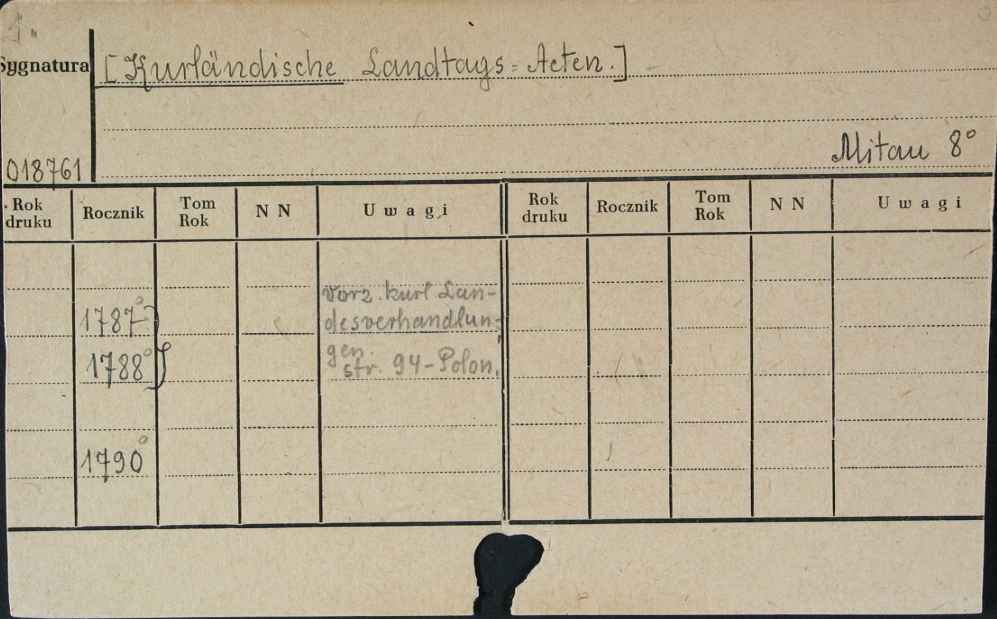 Sygnatura [Kurländische Landtags=Acten.]
Mitau 8°
018761
Rok druku Rocznik Tom Rok N N Uwagi Rok druku Rocznik Tom Rok N N Uwagi
vorz. kurl Lan-
1787° desverhandlun-
1788° gen.
str. 94-Polon.
1790°